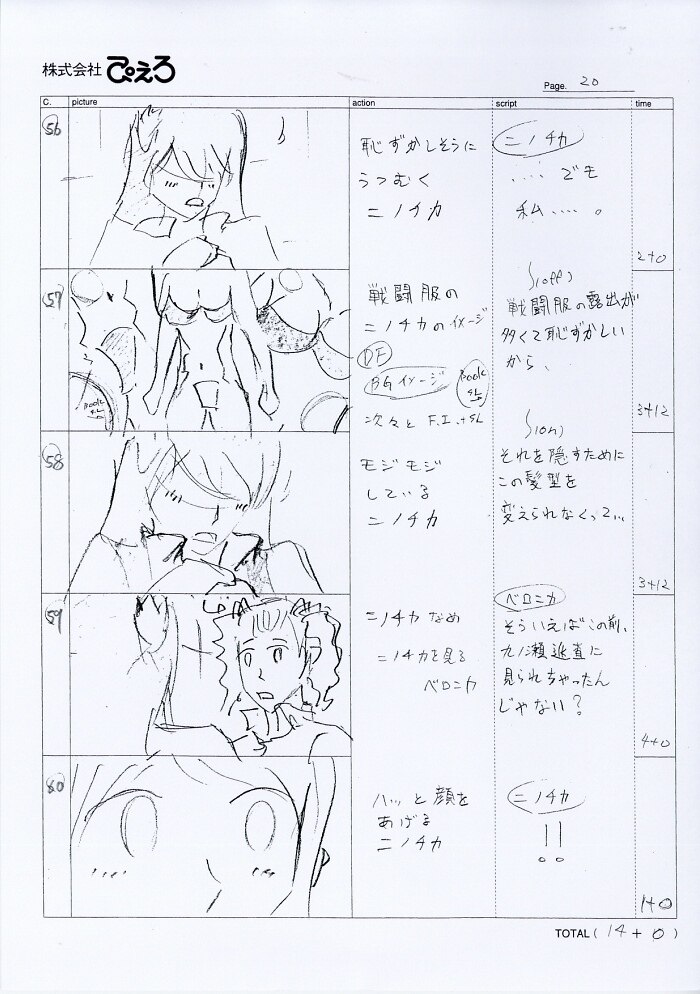 株式会社 ぴえろ
Page. 20
C.
picture
action
script
time
56
恥ずかしそうに
うつむく
ニノチカ
ニノチカ
‥‥でも
私‥‥。
2+0
57
戦闘服の
ニノチカのイメージ
DF
BGイメージ
Book
SL
次々と F.I.+SL
Book
SL
(off)
戦闘服の露出が
多くて恥ずかしい
から、
3+12
58
モジモジ
している
ニノチカ
(on)
それを隠すために
この髪型を
変えられなくって…
3+12
59
ニノチカ なめ
ニノチカを見る
ベロニカ
ベロニカ
そういえばこの前、
九ノ瀬巡査に
見られちゃったん
じゃない？
4+0
60
ハッと顔を
あげる
ニノチカ
ニノチカ
!!
1+0
TOTAL ( 14 + 0 )